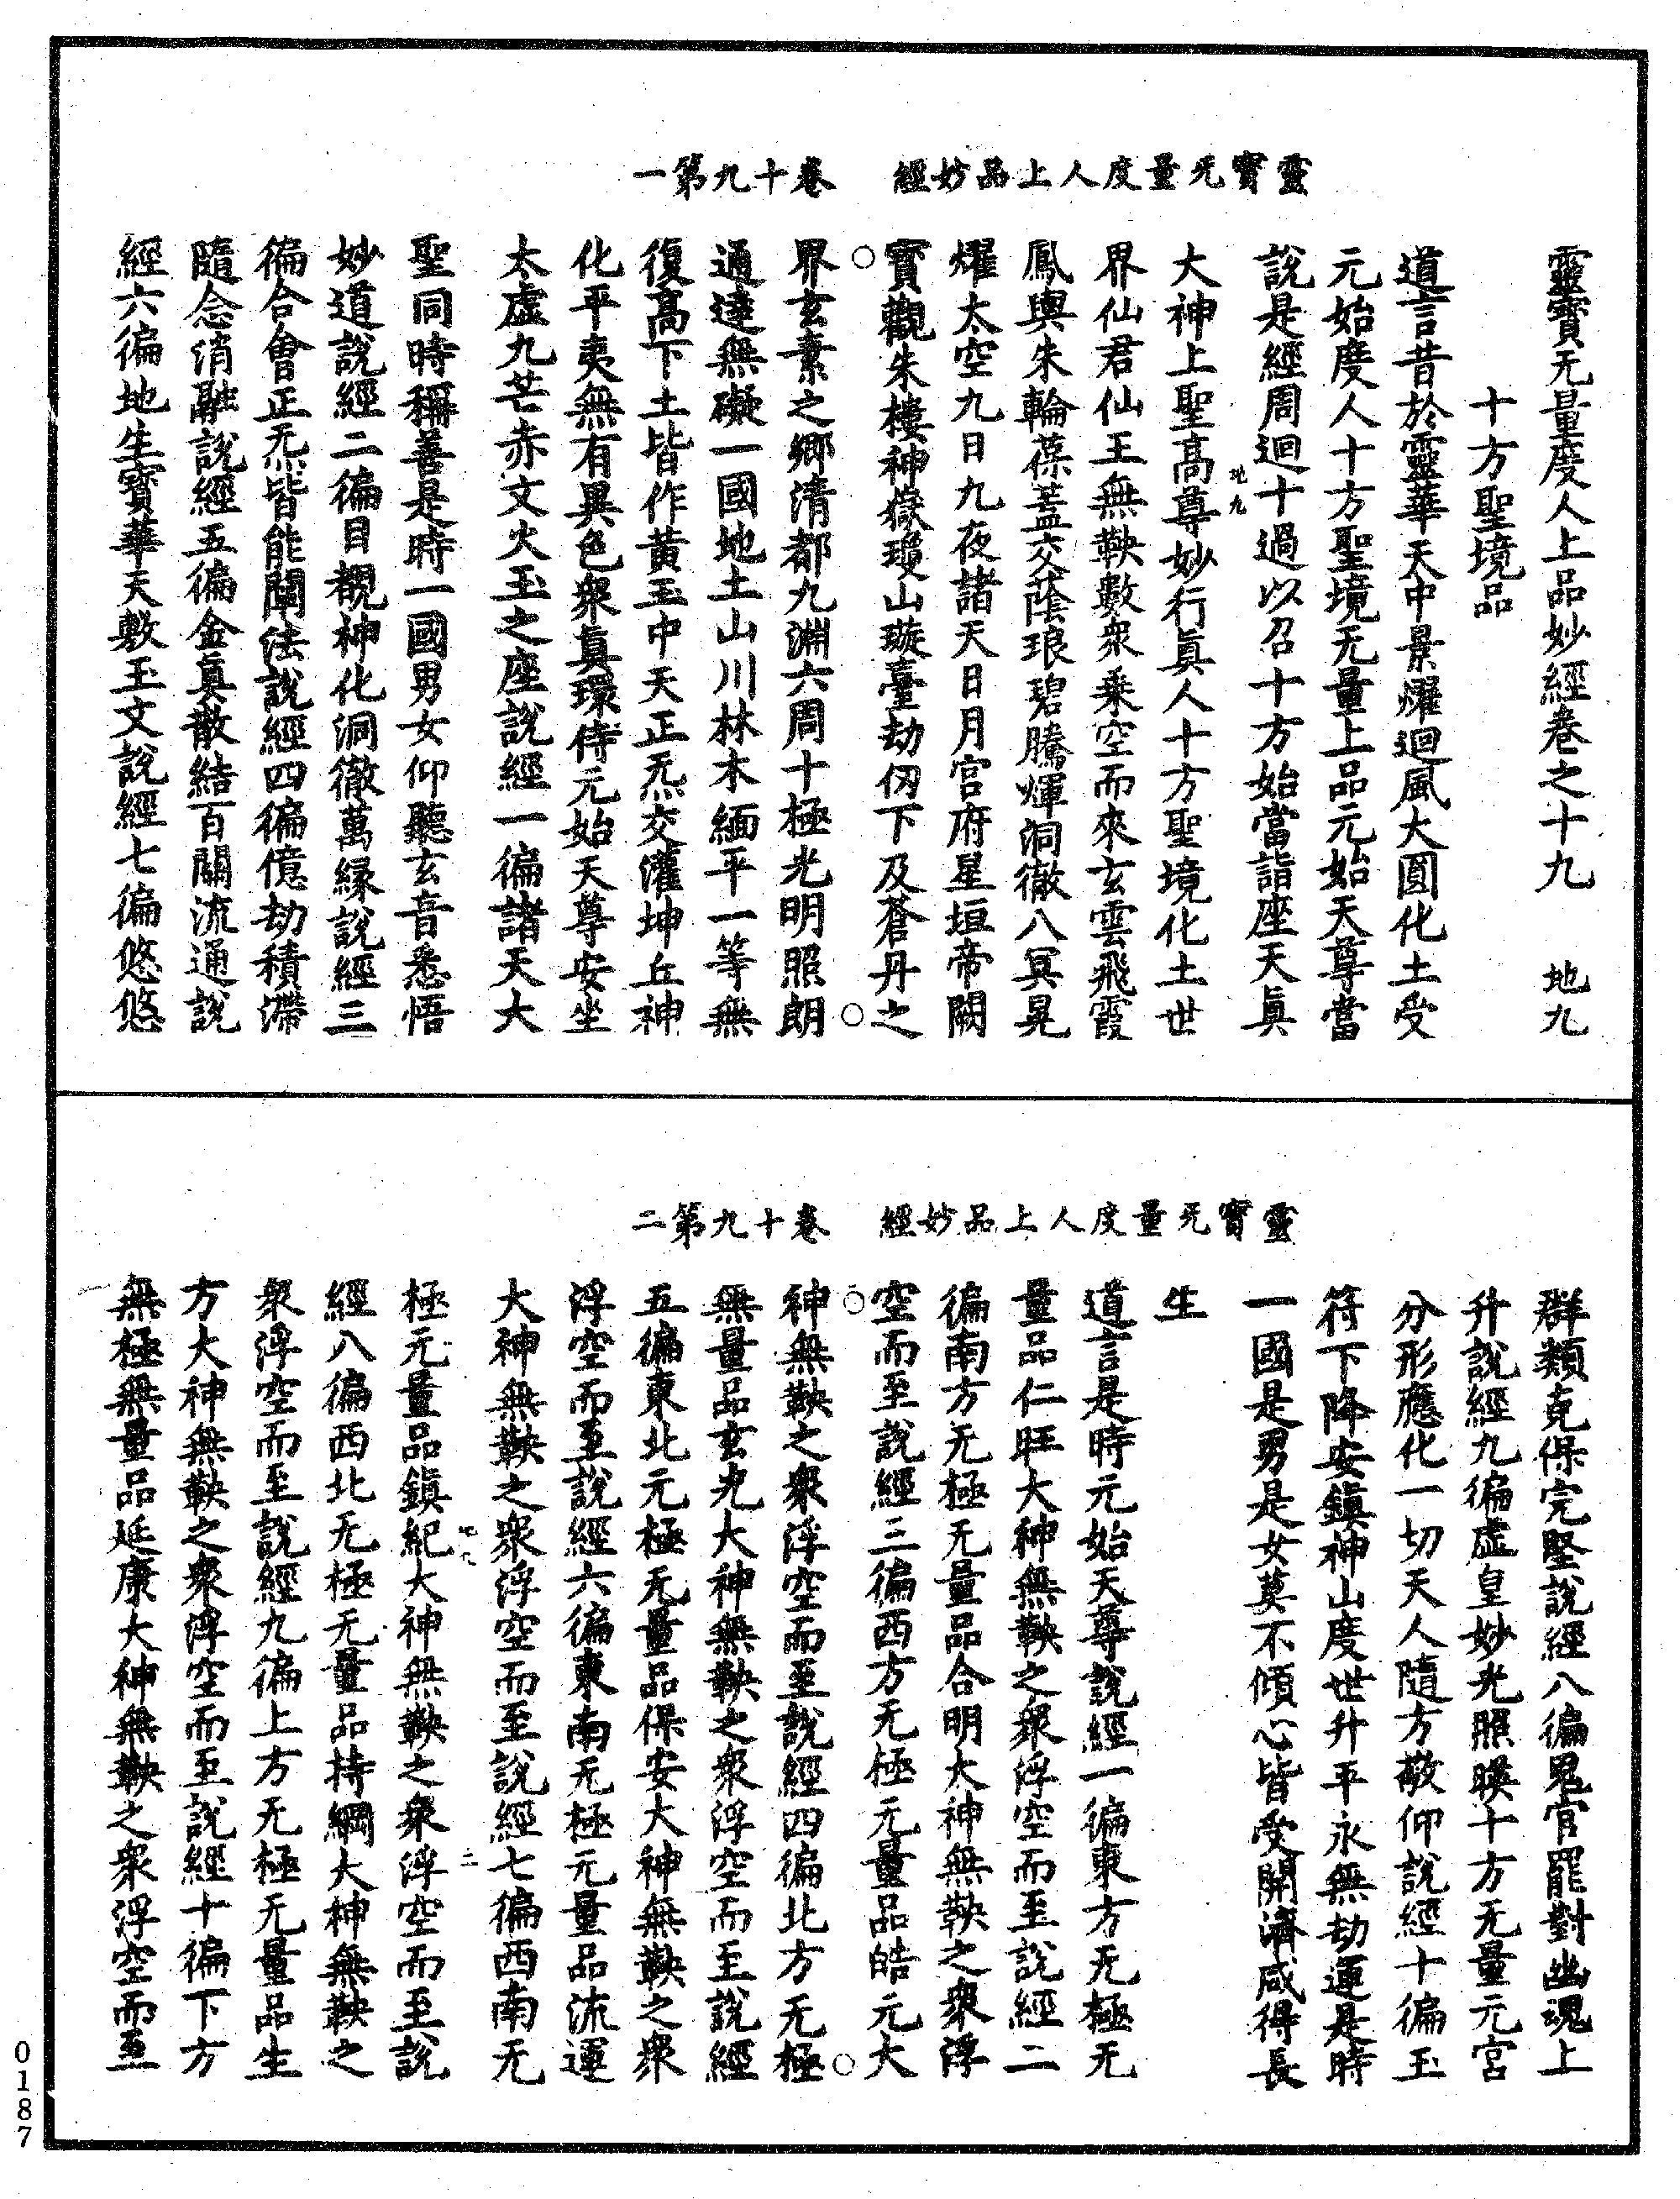 靈寶无量度人上品妙經　卷十九第一
靈寶无量度人上品妙經卷之十九　地九
十方聖境品
道言昔於靈華天中景燿迴風大圓化土受
元始度人十方聖境无量上品元始天尊當
說是經周迴十過以召十方始當詣座天真
地九
大神上聖高尊妙行真人十方聖境化土世
界仙君仙王無鞅數衆乘空而來玄雲飛霞
鳳輿朱輪葆蓋交蔭琅碧騰煇洞徹八冥晃
燿太空九日九夜諸天日月宮府星垣帝闕
寶觀朱樓神嶽瓊山璇臺劫仞下及蒼丹之
界玄素之鄉清都九淵六周十極光明照朗
通達無礙一國地土山川林木緬平一等無
復高下土皆作黃玉中天正炁交灌坤丘神
化平夷無有異色衆真環侍元始天尊安坐
太虛九芒赤文火玉之座說經一徧諸天大
聖同時稱善是時一國男女仰聽玄音悉悟
妙道說經二徧目覩神化洞徹萬緣說經三
徧合會正炁皆能闡法說經四徧億劫積滯
隨念消融說經五徧金真散結百關流通說
經六徧地生寶華天敷玉文說經七徧悠悠
靈寶无量度人上品妙經　卷十九第二
群類克保完堅說經八徧鬼官罷對幽魂上
升說經九徧虛皇妙光照暎十方无量元宮
分形應化一切天人隨方敬仰說經十徧玉
符下降安鎮神山度世升平永無劫運是時
一國是男是女莫不傾心皆受開濟咸得長
生
道言是時元始天尊說經一徧東方无極无
量品仁旺大神無鞅之衆浮空而至說經二
徧南方无極无量品合明大神無鞅之衆浮
空而至說經三徧西方无極元量品皓元大
神無鞅之衆浮空而至說經四徧北方无極
無量品玄光大神無鞅之衆浮空而至說經
五徧東北元極无量品保安大神無鞅之衆
浮空而至說經六徧東南无極元量品流運
大神無鞅之衆浮空而至說經七徧西南无
極元量品鎮紀大神無鞅之衆浮空而至說
二
經八徧西北无極无量品持綱大神無鞅之
衆浮空而至說經九徧上方无極无量品生
方大神無鞅之衆浮空而至說經十徧下方
無極無量品延康大神無鞅之衆浮空而至
0187